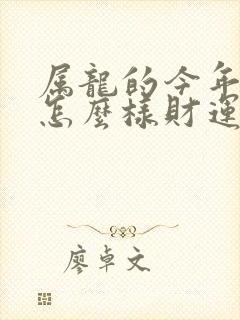 属龍的今年
怎麼樣財運
廖卓文